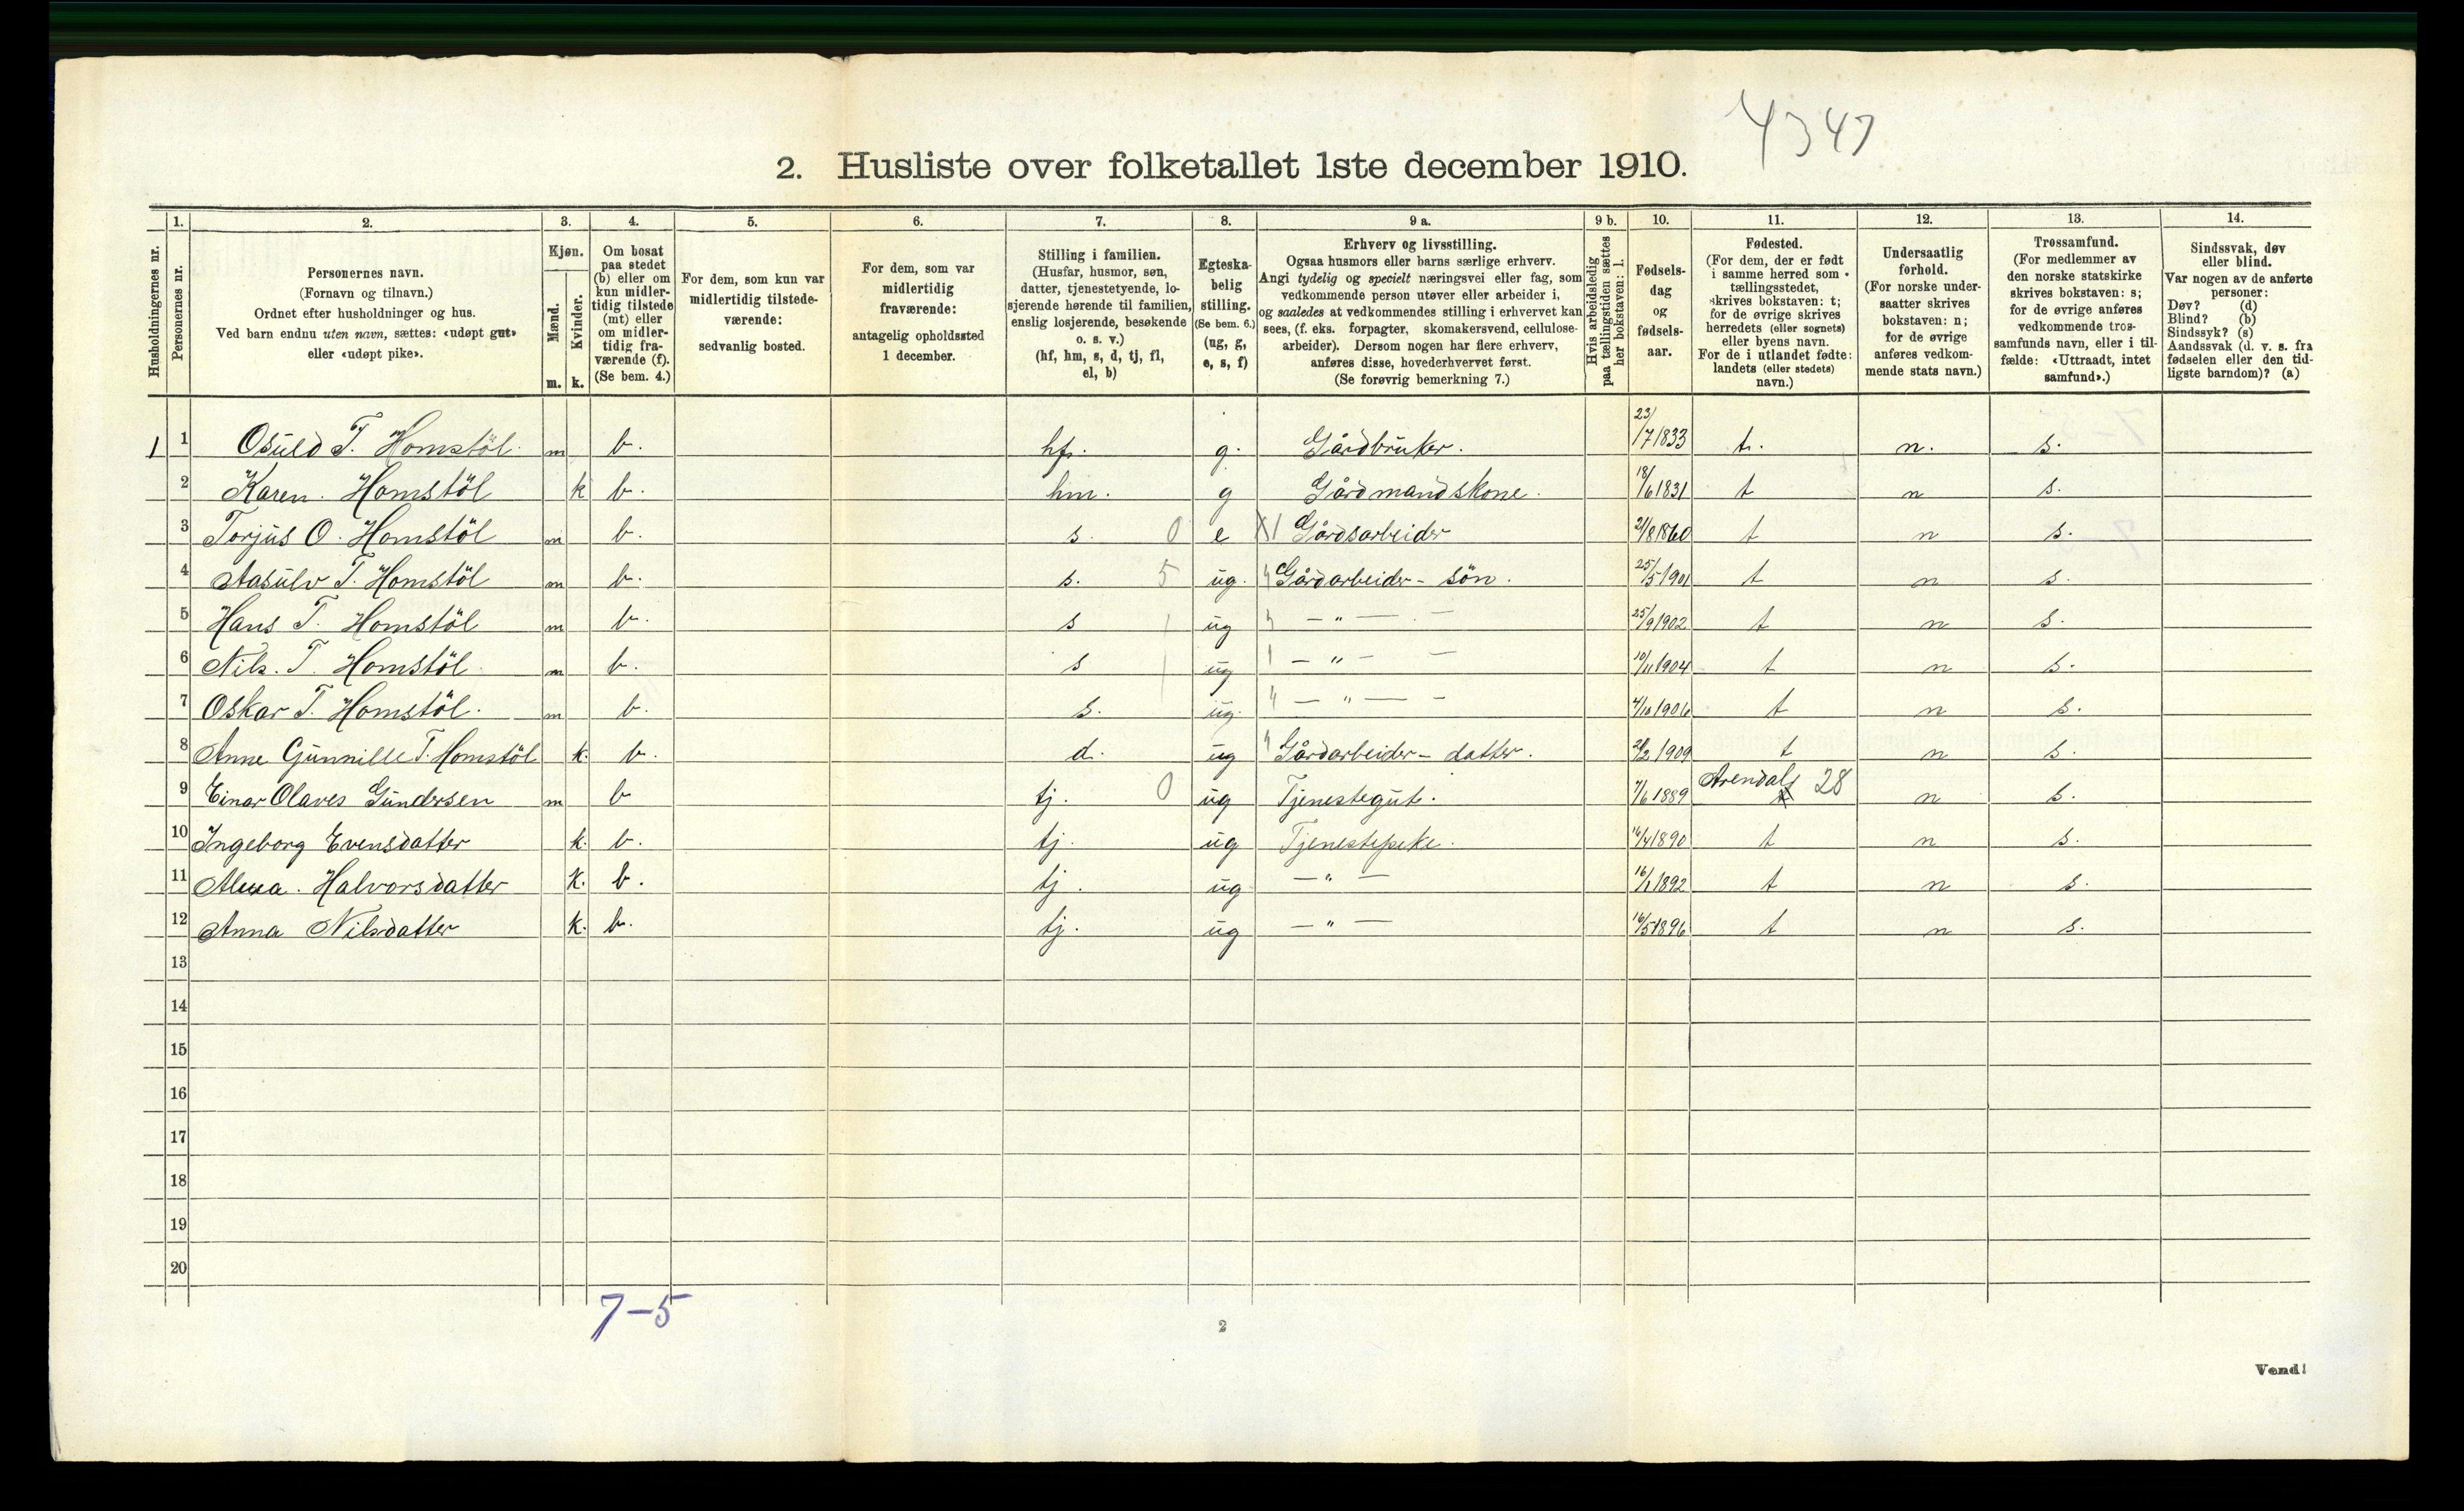 4347
2. Husliste over folketallet 1ste december 1910.
1. 2. 3. 4. 5. 6. 7. 8. 9 a. 9 b. 10. 11. 12. 13. 14.
Husholdningernes nr.
Personernes nr.
Personernes navn.
(Fornavn og tilnavn.)
Ordnet efter husholdninger og hus.
Ved barn endnu uten navn, sættes: «udøpt gut»
eller «udøpt pike».
Kjøn.
Mænd.
Kvinder.
m. k.
Om bosat
paa stedet
(b) eller om
kun midler-
tidig tilstede
(mt) eller
om midler-
tidig fra-
værende (f).
(Se bem. 4.)
For dem, som kun var
midlertidig tilstede-
værende:
sedvanlig bosted.
For dem, som var
midlertidig
fraværende:
antagelig opholdssted
1 december.
Stilling i familien.
(Husfar, husmor, søn,
datter, tjenestetyende, lo-
sjerende hørende til familien,
enslig losjerende, besøkende
o. s. v.)
(hf, hm, s, d, tj, fl,
el, b)
Egteska-
belig
stilling.
(Se bem. 6.)
(ug, g,
e, s, f)
Erhverv og livsstilling.
Ogsaa husmors eller barns særlige erhverv.
Angi tydelig og specielt næringsvei eller fag, som
vedkommende person utøver eller arbeider i,
og saaledes at vedkommendes stilling i erhvervet kan
sees, (f. eks. forpagter, skomakersvend, cellulose-
arbeider). Dersom nogen har flere erhverv,
anføres disse, hovederhvervet først.
(Se forøvrig bemerkning 7.)
Hvis arbeidsledig
paa tællingstiden sættes
her bokstaven: l.
Fødsels-
dag
og
fødsels-
aar.
Fødested.
(For dem, der er født
i samme herred som
tællingsstedet,
skrives bokstaven: t;
for de øvrige skrives
herredets (eller sognets)
eller byens navn.
For de i utlandet fødte:
landets (eller stedets)
navn.)
Undersaatlig
forhold.
(For norske under-
saatter skrives
bokstaven: n;
for de øvrige
anføres vedkom-
mende stats navn.)
Trossamfund.
(For medlemmer av
den norske statskirke
skrives bokstaven: s;
for de øvrige anføres
vedkommende tros-
samfunds navn, eller i til-
fælde: «Uttraadt, intet
samfund».)
Sindssvak, døv
eller blind.
Var nogen av de anførte
personer:
Døv? (d)
Blind? (b)
Sindssyk? (s)
Aandssvak (d. v. s. fra
fødselen eller den tid-
ligste barndom)? (a)
1 1 Osuld T. Homstöl m b. hf. g. Gårdbruker. 23/7 1833 t. n. s.
2 Karen. Homstöl k b. hm. g Gårdmandskone. 18/6 1831 t n s.
3 Torjus O. Homstöl m b. s. 0 e Gårdsarbeider 21/8 1860 t n s.
4 Aasulv T. Homstöl m b. s. 5 ug. Gårdarbeider - sön. 25/5 1901 t n s.
5 Hans T. Homstöl m b. s ug — " — 25/9 1902 t n s.
6 Nils. T. Homstöl. m b. s ug — " — 10/11 1904 t n s.
7 Oskar T. Homstöl. m b. s. ug. — " — 4/10 1906 t n s.
8 Anne Gunnille T. Homstöl k. b. d. ug Gårdarbeider - datter. 21/2 1909 t n s.
9 Einar Olaves Gundersen m b tj. 0 ug Tjenestegut. 7/6 1889 Arendal 28 n s.
10 Ingeborg Evensdatter k. b. tj. ug Tjenestepike. 16/4 1890 t n s.
11 Halvorsdatter k. b. tj. ug — " — 16/1 1892 t n s.
12 Anna Nilsdatter k. b. tj. ug — " — 16/5 1896 t n s.
13
14
15
16
17
18
19
20
7-5
2
Vend!